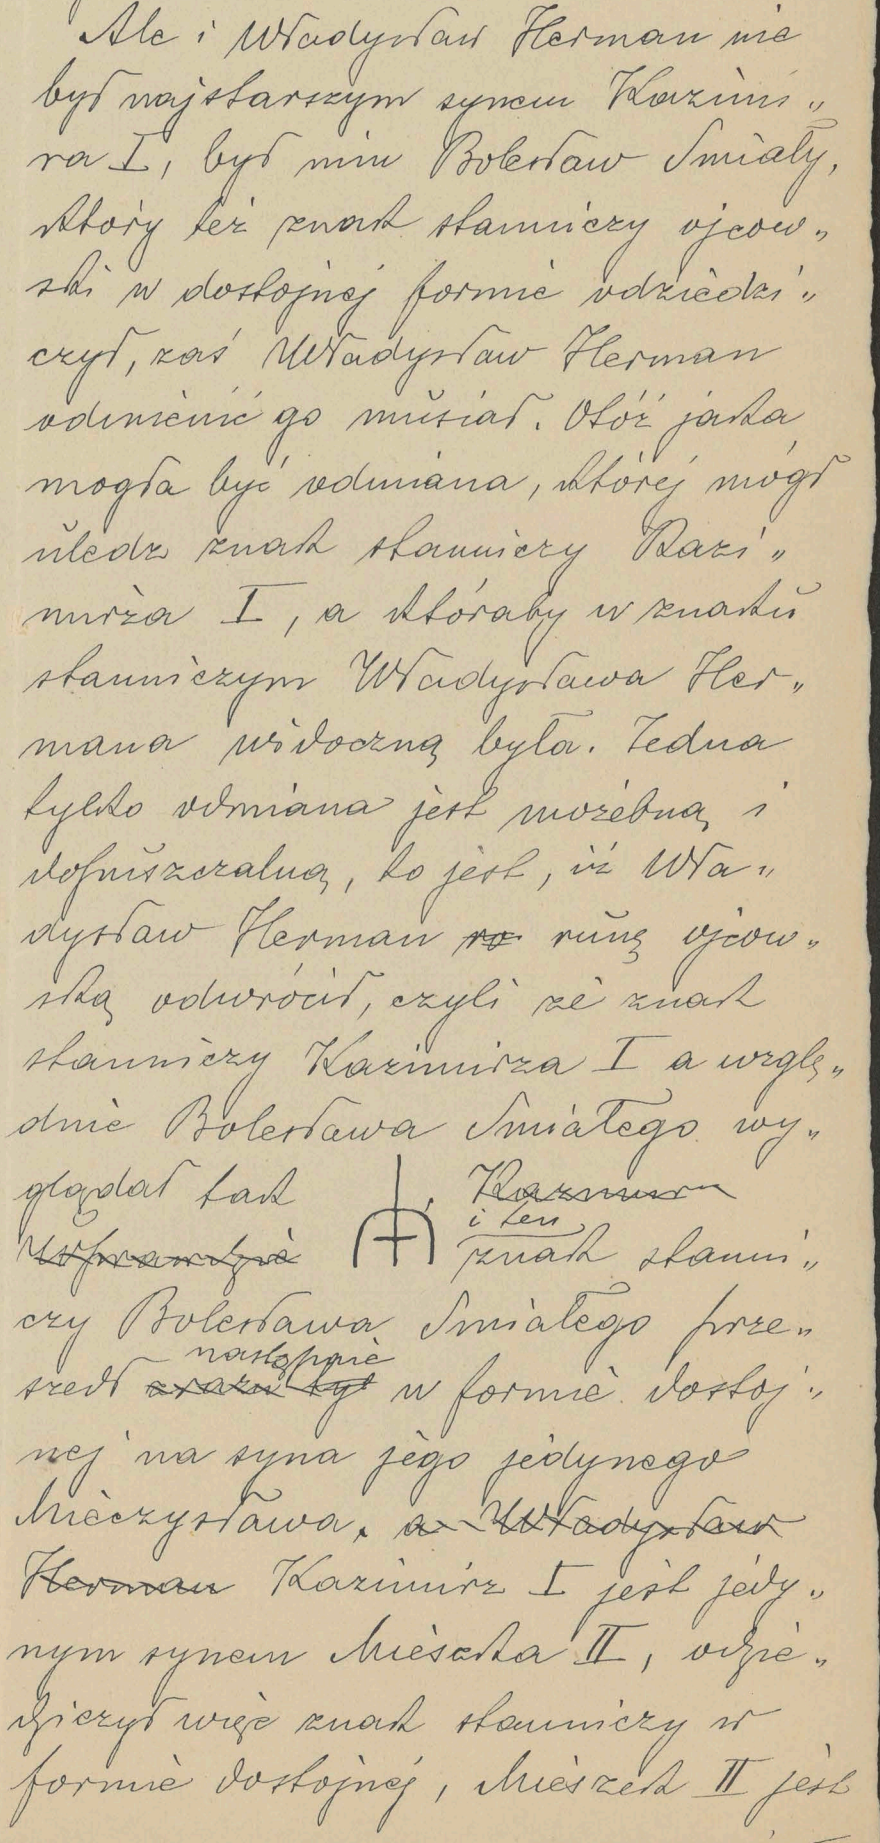 Ale i Władysław Herman nie
był najstarszym synem Kazimi„
rza I, był nim Bolesław Śmiały,
który też znak stanniczy ojcow„
ski w dostojnej formie odziedzi„
czył, zaś Władysław Herman
odmienić go musiał. Otóż jaka
mogła być odmiana, której mógł
uledz znak stanniczy Kazi„
mirza I, a któraby w znaku
stanniczym Władysława Her„
mana widoczną była. Jedna
tylko odmiana jest możebną i
dopuszczalną, to jest, iż Wła„
dysław Herman ro runę ojcow„
ską odwrócił, czyli że znak
stanniczy Kazimirza I a wzglę„
dnie Bolesława Śmiałego wy„
glądał tak
i ten
Wprawdzie znak stanni„
czy Bolesława Śmiałego prze„
następnie
szedł w formie dostoj„
nej na syna jego jedynego
Mieczysława. a Władysław
Herman Kazimirz I jest jedy„
nym synem Mieszka II, odzie„
dziczył więc znak stanniczy w
formie dostojnej, Mieszek II jest